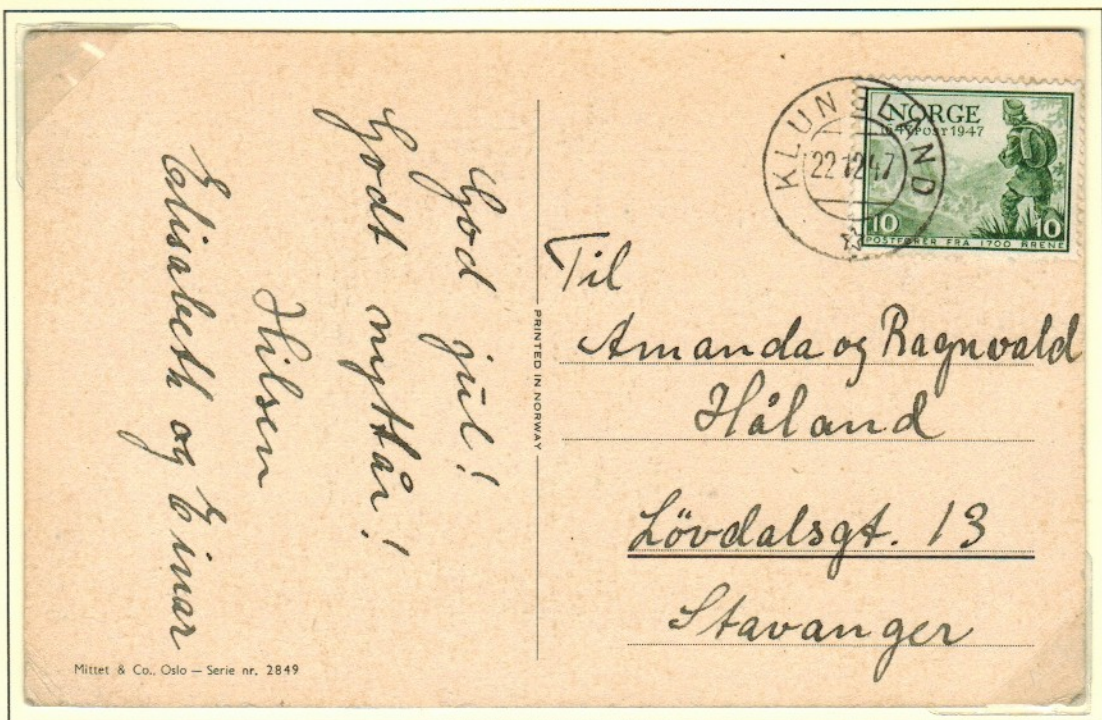 God jul!
Godt nyttår!
Hilsen
Elisabeth og Einar
Mittet & Co., Oslo — Serie nr. 2849
PRINTED IN NORWAY
KLUNGLAND
22 12 47
NORGE
1647 POST 1947
10 10
POSTFØRER FRA 1700 ÅRENE
Til
Amanda og Ragnvald
Håland
Lövdalsgt. 13
Stavanger